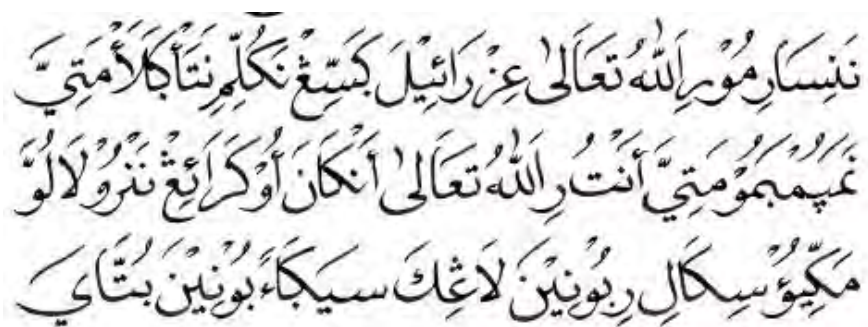 نَنِسَارِمُوْرِاَللّٰهُ تَعَالىٰ عِزْرَائِيْلَ كَسِّڠْ نَكُلِّرِ نِتَأْكَلَأْمَتِيَّ
نَمَڤُمْبَمُوْمَتِيَّ أَنْتُ رِاَللّٰهُ تَعَالىٰ أَنْكَانَ أَوْكَرَائِڠْ نَنْرُوْلَالُوَّ
مَكِّيُؤْ سِكَالِ رِبُوْنِيْنَ لَاڠِكَ سِيَكَاءَ بُوْنِيْنَ بُتَّايَ